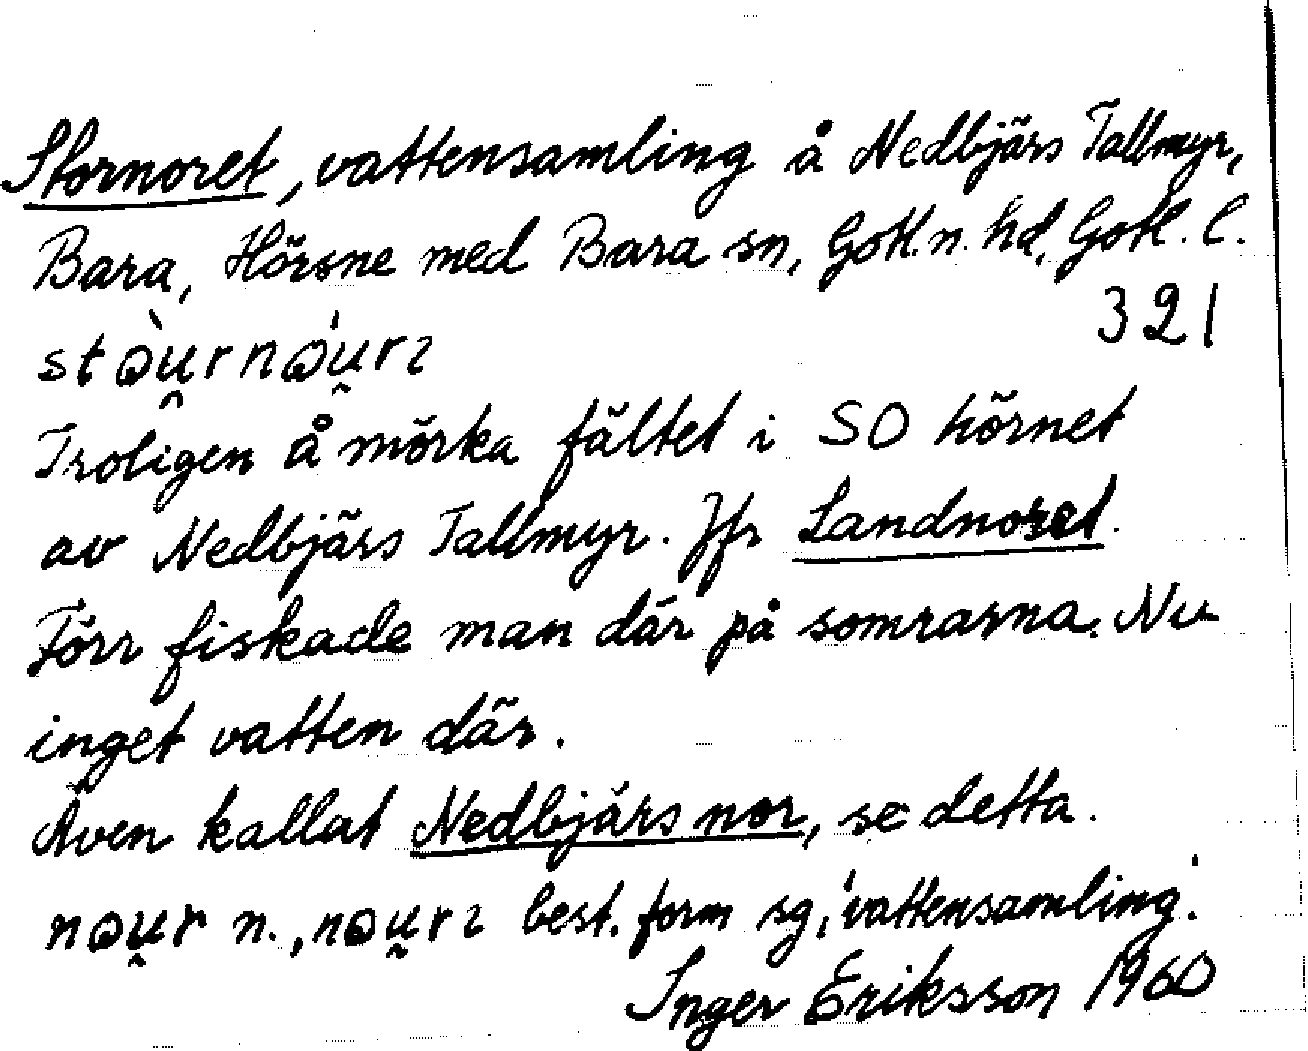 Stornoret, vattensamling å Nedbjärs Tallmyr,
Bara, Hörsne med Bara sn, Gotl. n. hd, Gotl. l.
321
stòu̯rnóu̯rı
Troligen å mörka fältet i SO hörnet
av Nedbjärs Tallmyr. Jfr Landnoret.
Förr fiskade man där på somrarna. Nu
inget vatten där.
Även kallat Nedbjärs nor, se detta.
nou̯r n., nou̯rı best. form sg, 'vattensamling'.
Inger Eriksson 1960